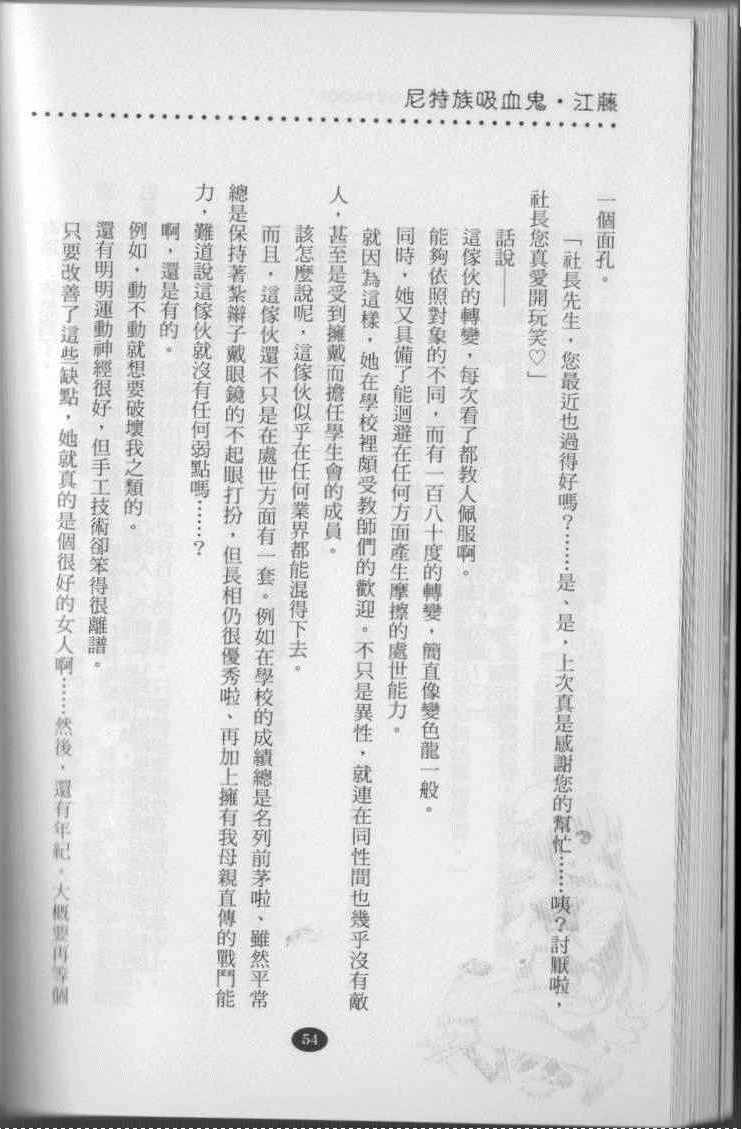 尼特族吸血鬼・江藤
一個面孔。
「社長先生，您最近也過得好嗎？……是、是，上次真是感謝您的幫忙……咦？討厭啦，
社長您真愛開玩笑♡」
話說——
這傢伙的轉變，每次看了都教人佩服啊。
能夠依照對象的不同，而有一百八十度的轉變，簡直像變色龍一般。
同時，她又具備了能迴避在任何方面產生摩擦的處世能力。
就因為這樣，她在學校裡頗受教師們的歡迎。不只是異性，就連在同性間也幾乎沒有敵
人，甚至是受到擁戴而擔任學生會的成員。
該怎麼說呢，這傢伙似乎在任何業界都能混得下去。
而且，這傢伙還不只是在處世方面有一套。例如在學校的成績總是名列前茅啦、雖然平常
總是保持著紮辮子戴眼鏡的不起眼打扮，但長相仍很優秀啦、再加上擁有我母親直傳的戰鬥能
力，難道說這傢伙就沒有任何弱點嗎……？
啊，還是有的。
例如，動不動就想要破壞我之類的。
還有明明運動神經很好，但手工技術卻笨得很離譜。
只要改善了這些缺點，她就真的是個很好的女人啊……然後，還有年紀。大概要再等個
54